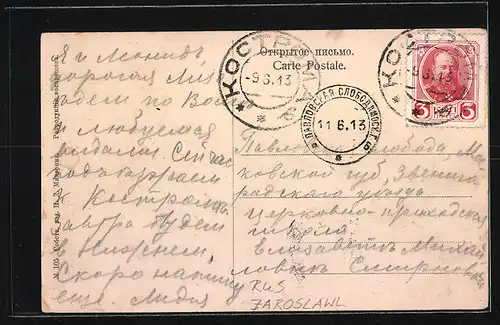 Открытое письмо.
Carte Postale.
КОСТРОМА
-9.6.13
КОСТРОМА
-9.6.13
3 КОП 3
ПАВЛОВСКАЯ СЛОБОДА
11 6.13
Я и Леонид,
дорогая
едем по
и любуемся
видами. Сейчас
подъезжаем
к Костроме
завтра будем
в Нижнем.
Скоро напишу
еще. Лидия
Павловская Слобода, Мос-
ковской губ, Звениго-
родского уезда
церковно-приходская
школа
Елизавете Михай
ловне Смирновой
RUS
JAROSLAWL